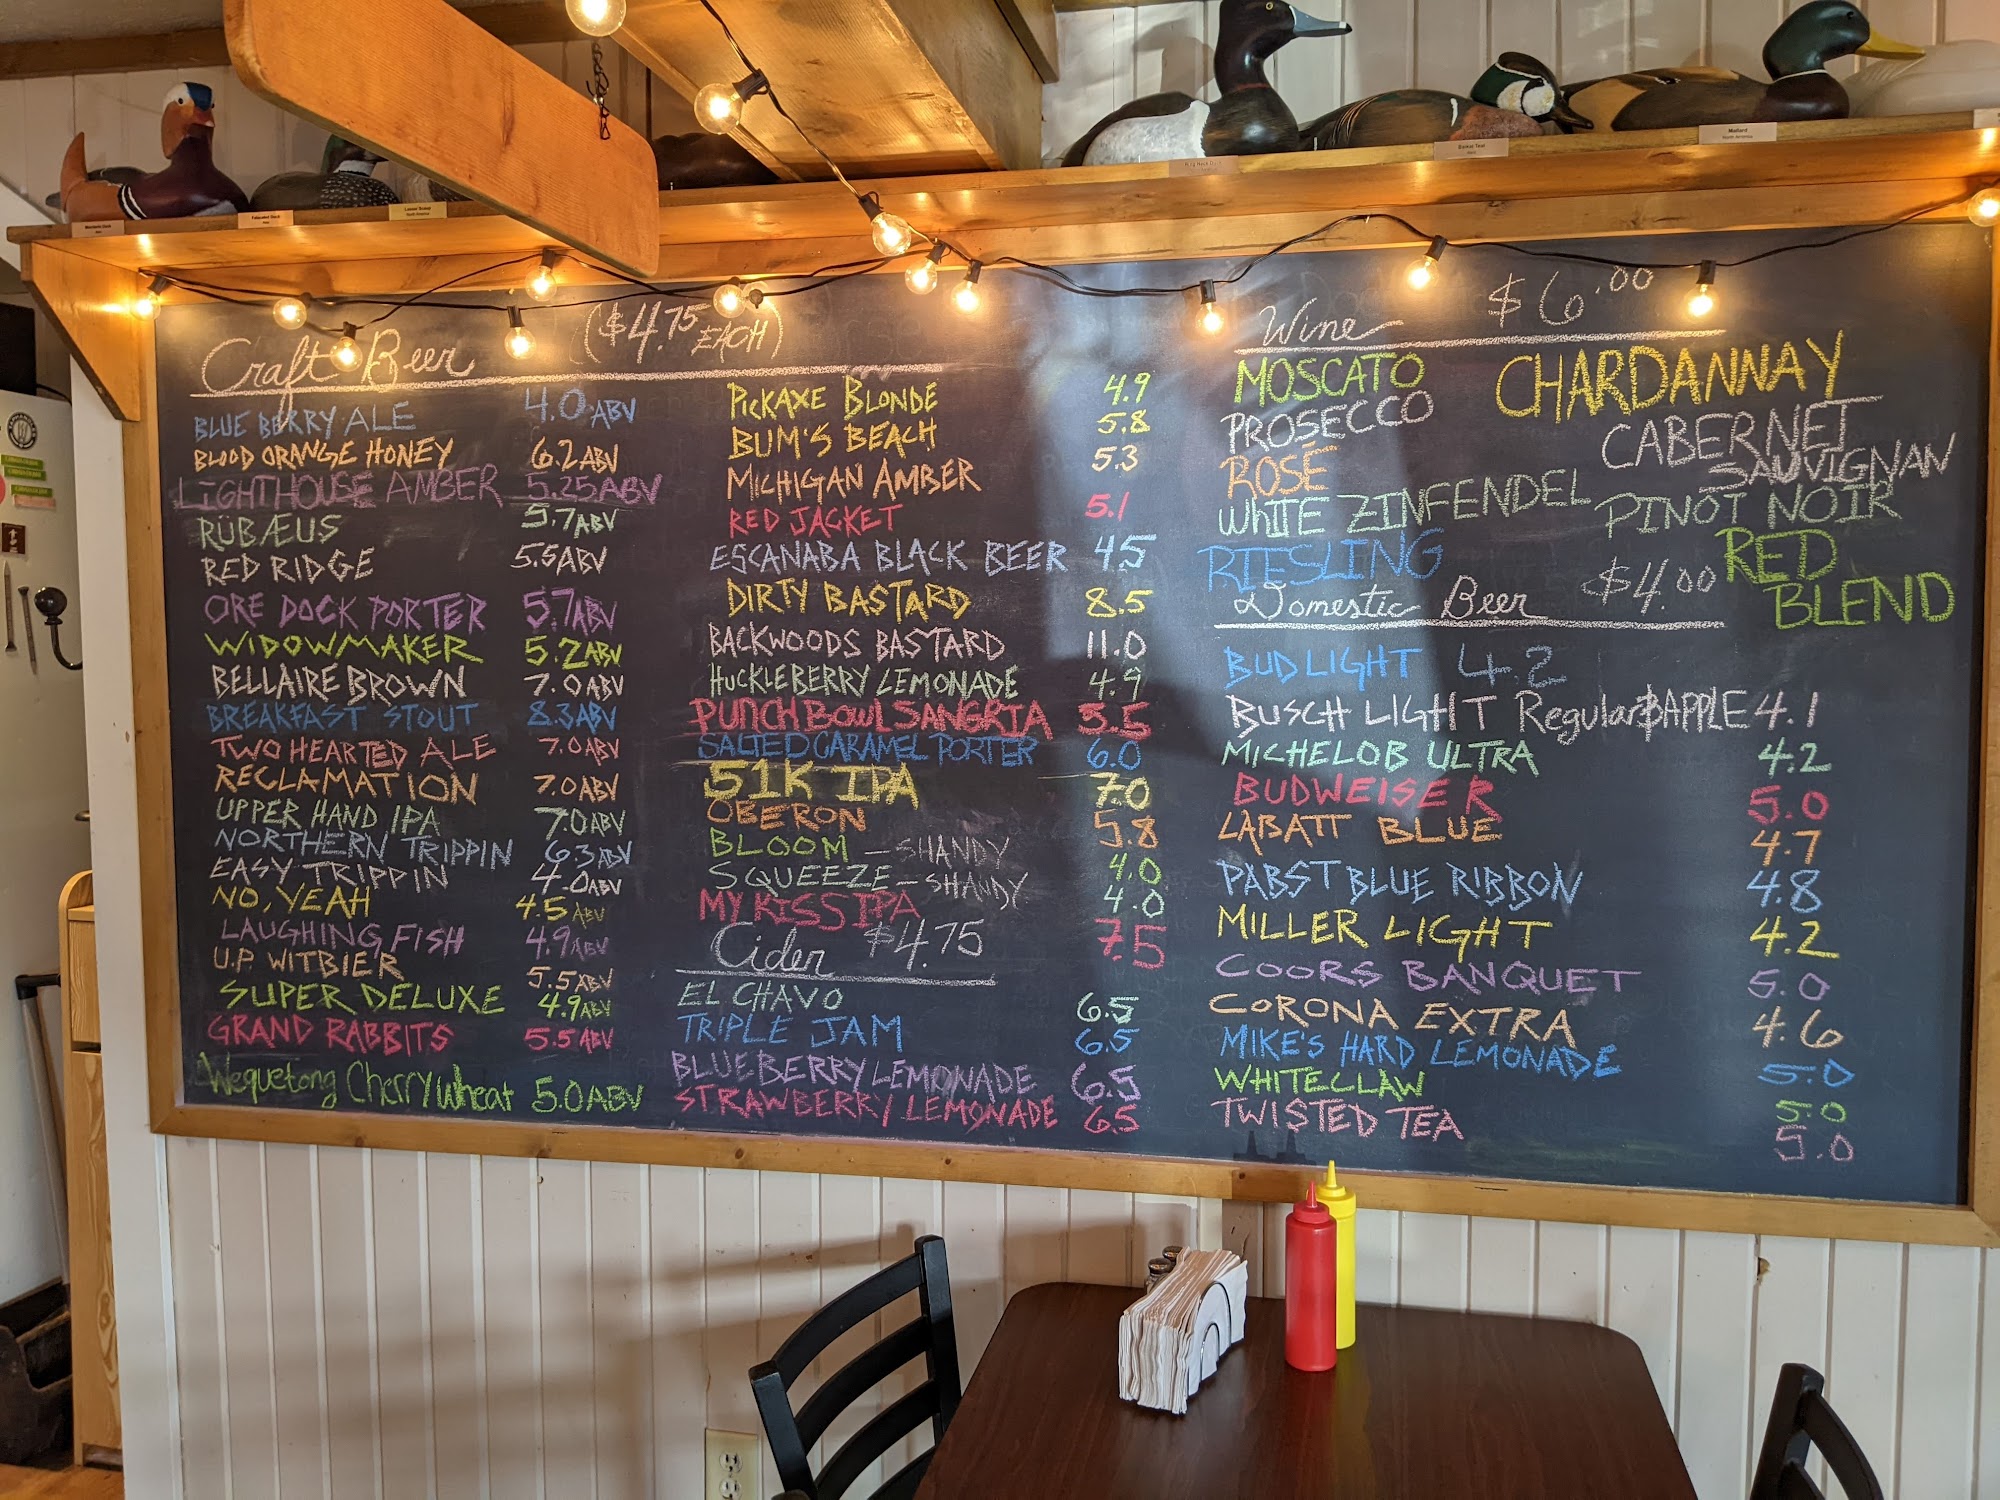 Craft Beer ($4.75 EACH)
BLUEBERRY ALE 4.0 ABV
BLOOD ORANGE HONEY 6.2 ABV
LIGHTHOUSE AMBER 5.25 ABV
RÜBÆUS 5.7 ABV
RED RIDGE 5.5 ABV
ORE DOCK PORTER 5.7 ABV
WIDOWMAKER 5.2 ABV
BELLAIRE BROWN 7.0 ABV
BREAKFAST STOUT 8.3 ABV
TWO HEARTED ALE 7.0 ABV
RECLAMATION 7.0 ABV
UPPER HAND IPA 7.0 ABV
NORTHERN TRIPPIN 6.3 ABV
EASY TRIPPIN 4.0 ABV
NO, YEAH 4.5 ABV
LAUGHING FISH 4.9 ABV
U.P. WITBIER 5.5 ABV
SUPER DELUXE 4.9 ABV
GRAND RABBITS 5.5 ABV
Wequetong Cherry Wheat 5.0 ABV
PICKAXE BLONDE 4.9
BUM'S BEACH 5.8
MICHIGAN AMBER 5.3
RED JACKET 5.1
ESCANABA BLACK BEER 4.5
DIRTY BASTARD 8.5
BACKWOODS BASTARD 11.0
HUCKLEBERRY LEMONADE 4.9
PUNCH BOWL SANGRIA 5.5
SALTED CARAMEL PORTER 6.0
51K IPA 7.0
OBERON 5.8
BLOOM - SHANDY 4.0
SQUEEZE - SHANDY 4.0
MY KISS IPA 7.5
Cider $4.75
EL CHAVO 6.5
TRIPLE JAM 6.5
BLUEBERRY LEMONADE 6.5
STRAWBERRY LEMONADE 6.5
Wine $6.00
MOSCATO
PROSECCO
ROSÉ
WHITE ZINFENDEL
RIESLING
CHARDANNAY
CABERNET
SAUVIGNAN
PINOT NOIR
RED
BLEND
Domestic Beer $4.00
BUD LIGHT 4.2
BUSCH LIGHT Regular & APPLE 4.1
MICHELOB ULTRA 4.2
BUDWEISER 5.0
LABATT BLUE 4.7
PABST BLUE RIBBON 4.8
MILLER LIGHT 4.2
COORS BANQUET 5.0
CORONA EXTRA 4.6
MIKE'S HARD LEMONADE 5.0
WHITECLAW 5.0
TWISTED TEA 5.0
Mallard